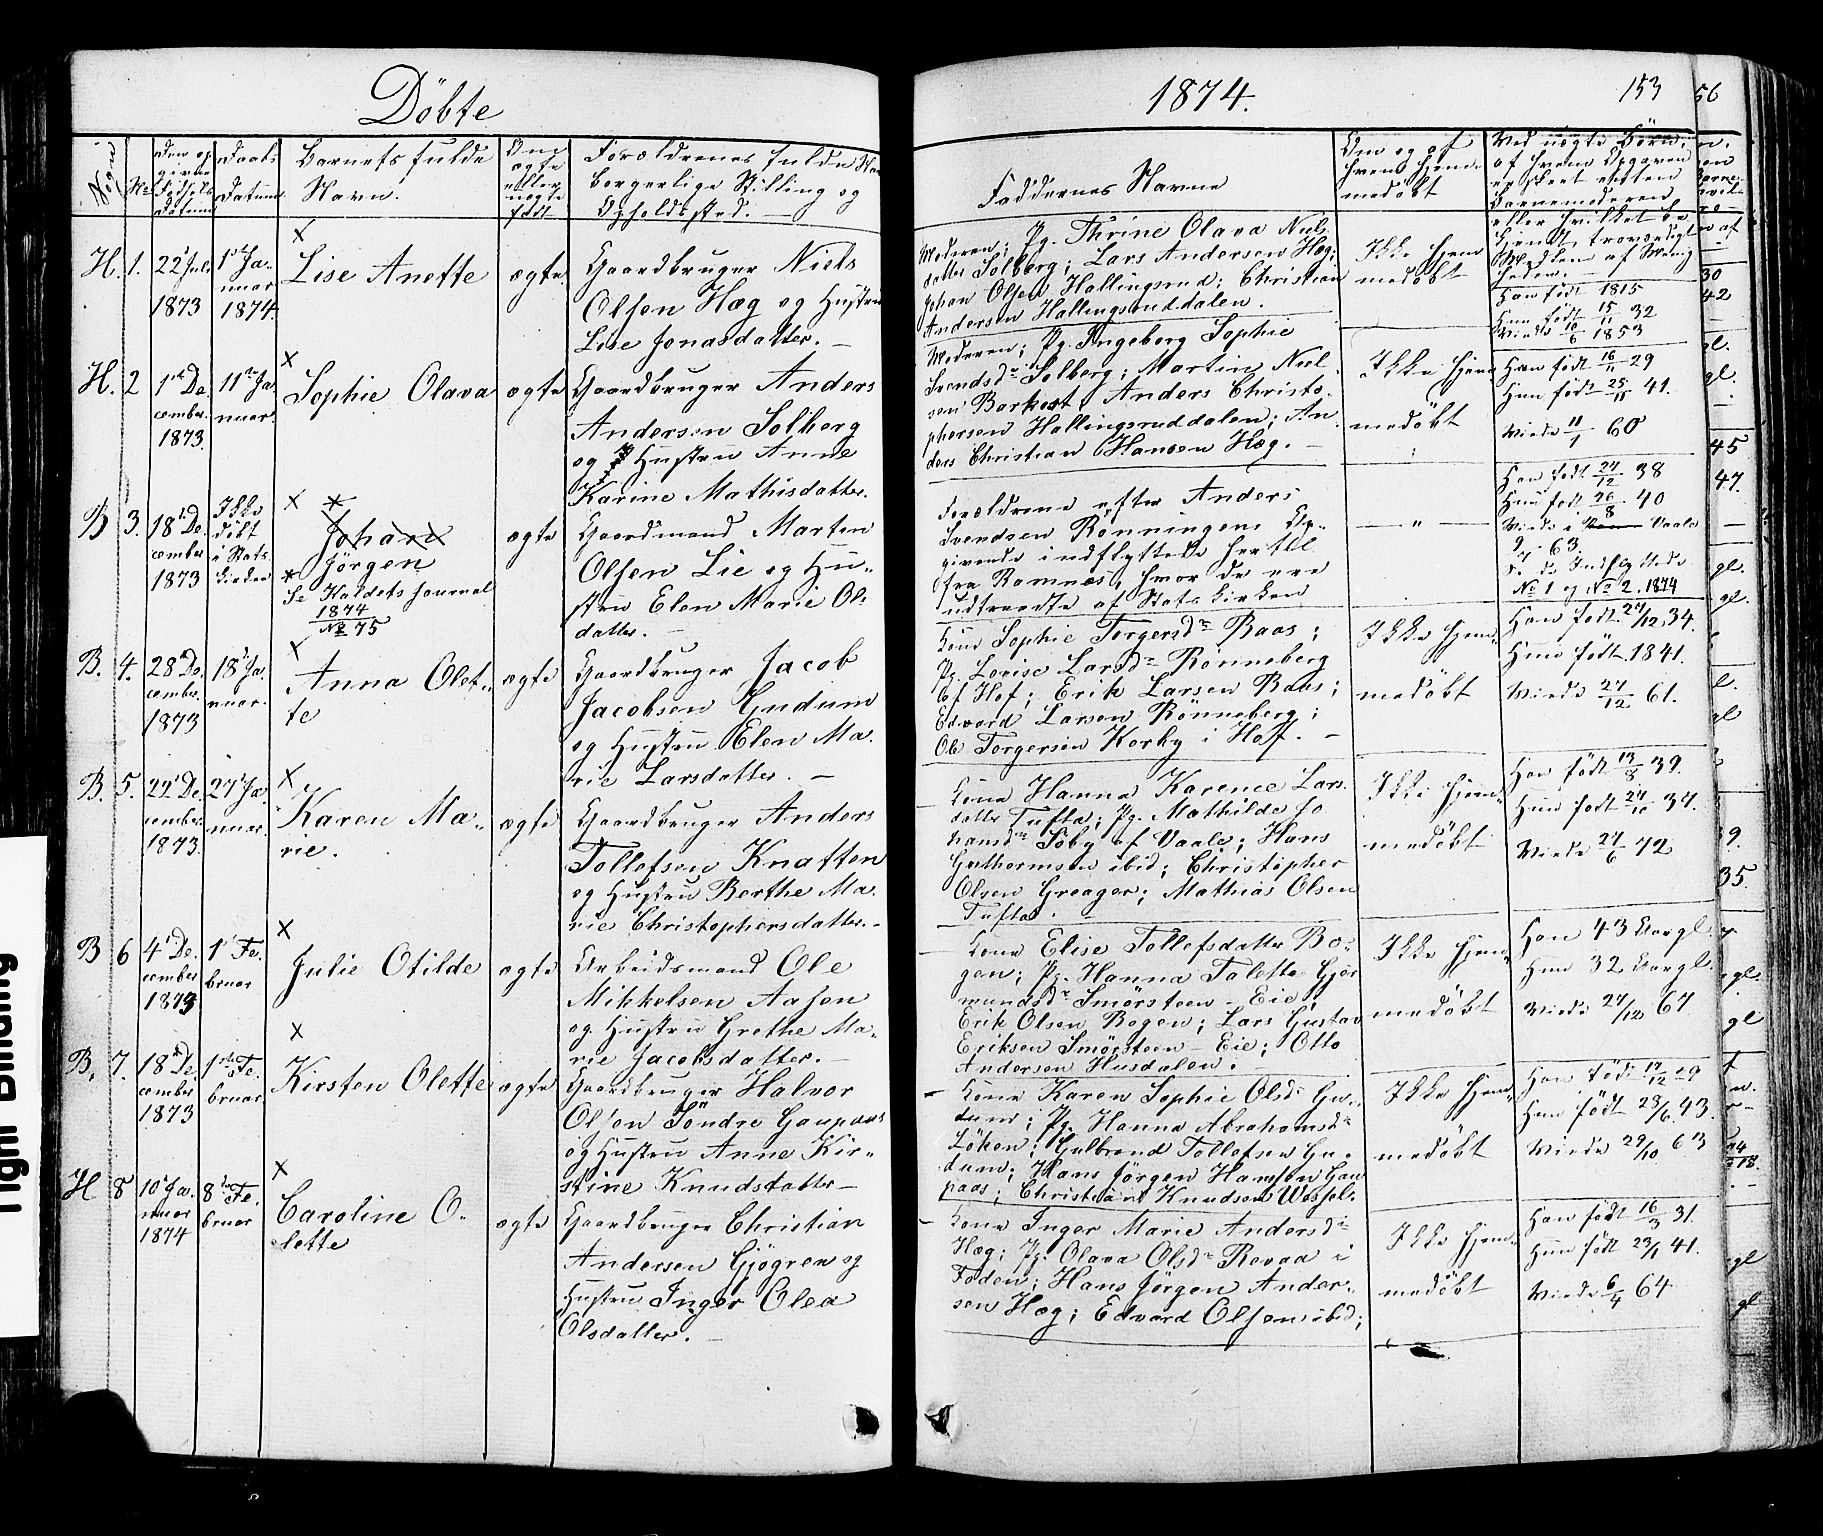 Döbte
1874.
153
56
Sogn
No
Den op
givne
Födsels
Datum
Daabs
Datum
Barnets fulde
Navn.
Om
ægte
eller
uægte
født
Forældrenes fulde Navn
borgerlige Stilling og
Opholdssted.
Faddernes Navne
Om og af
hvem hjem-
medöbt
Ved uægte Börn:
af hvem Opgaven
er skeet efter
Barnemoderen
eller hvilket be
kjendt, troværdigt
Medlem af Menig
heden.
H. 1.
22 Juli
1873
1 Ja-
nuar
1874.
Lise Anette
ægte
Gaardbruger Niels
Olsen Hæg og Hustru
Lise Jonasdatter.
Moderen; Pg. Thrine Olava Niels
datter Solberg; Lars Andersen Hæg;
Johan Olsen Hallingsrud; Christian
Andersen Hallingsruddalen.
Ikke hjem
medöbt
Han født 1815
Hun født 15/11 32
Viede 10/6 1853
H. 2
1ste De
cember.
1873.
11te Ja
nuar.
Sophie Olava
ægte
Gaardbruger Anders
Andersen Solberg
og Hustru Anne
Karine Mathisdatter.
Moderen; Pg. Ingeborg Sophie
Svendsdr Solberg; Martin Niel
sen Borkost, Anders Christo
phersen Hallingsruddalen; An
ders Christian Hansen Hæg.
Ikke hjem
medöbt
Han født 16/11 29
Hun født 25/11 41.
Viede 11/1 60
B 3.
18 De
cember
1873
Ikke
döbt
i Stats
kirken
Johan
Jörgen
Se Kaldets Journal
1874
No 75
ægte
Gaardmand Marten
Olsen Lie og Hu-
stru Elen Marie Ol-
datter.
Forældrene efter Anders
Svendsen Rönningens Op-
givende indflyttede hertil
fra Ramnes, hvor de ere
udtraadte af Statskirken
— " —
Han født 27/12 38
Hun født 26/8 40
Viede i Vaale
9/7 63.
Se de Indflyttede
No 1 og No 2. 1874
B. 4.
28 De
cember.
1873
18 Ja
nuar.
Anna Olet-
te
ægte
Gaardbruger Jacob
Jacobsen Gudum
og Hustru Elen Ma-
rie Larsdatter.
Kone Sophie Torgersdr Baas;
Pg. Lovise Larsdr Rönneberg
af Hof; Erik Larsen Baas;
Edvard Larsen Rönneberg;
Ole Torgersen Korby i Hof.
Ikke hjem-
medöbt
Han født 27/12 34.
Hun født 1841.
Viede 27/12 61.
B. 5.
29 De
cember.
1873.
27 Ja
nuar.
Karen Ma-
rie.
ægte
Gaardbruger Anders
Tollefsen Knatten
og Hustru Berthe Ma-
rie Christophersdatter.
Kone Hanna Karence Lars
datter Tufta; Pg. Mathilde Jo
hansdr Söby af Vaale; Hans
Guthormsen ibid; Christopher
Olsen Greager; Mathias Olsen
Tufta.
Ikke hjem-
medöbt
Han født 13/8 39.
Hun født 27/10 37.
Viede 27/6 72
B 6
4 De.
cember
1873
1 Fe.
bruar
Julie Otilde
ægte
Arbeidsmand Ole
Mikkelsen Aasen
og Hustru Grethe Ma-
rie Jacobsdatter.
Kone Elise Tollefsdatter Bo-
gen; Pg. Hanna Talette Gjör
mundsdr Smörsteen-Eie;
Erik Olsen Bogen; Lars Gustav
Eriksen Smörsteen-Eie; Otto
Andersen Husdalen.
Ikke hjem-
medöbt
Han 43 Aar gl.
Hun 32 Aar gl.
Viede 27/12 67
B. 7.
18 De.
cember
1873
1ste Fe.
bruar
Kirsten Olette
ægte
Gaardbruger Halvor
Olsen Söndre Gaupaas
og Hustru Anne Kir-
stine Knudsdatter
Kone Karen Sophie Olsdr Gu-
dum; Pg. Hanna Abrahamsdr
Löken; Gulbrand Tollefsen Gu-
dum; Hans Jörgen Hansen Gau
paas; Christian Knudsen Wessel.
Ikke hjem-
medöbt
Han født 17/12 29
Hun født 28/6 43.
Viede 29/10 63
H 8
10 Ja.
nuar
1874
8de Fe.
bruar
Caroline O-
lette
ægte
Gaardbruger Christian
Andersen Gjögren og
Hustru Inger Olea
Olsdatter.
Kone Inger Marie Andersdr
Hæg; Pg. Olava Olsdr Revaa i
Foden; Hans Jörgen Ander-
sen Hæg; Edvard Olsen ibid;
Ikke hjem-
medöbt
Han født 16/3 31.
Hun født 23/1 41.
Viede 6/4 64
Tight Binding